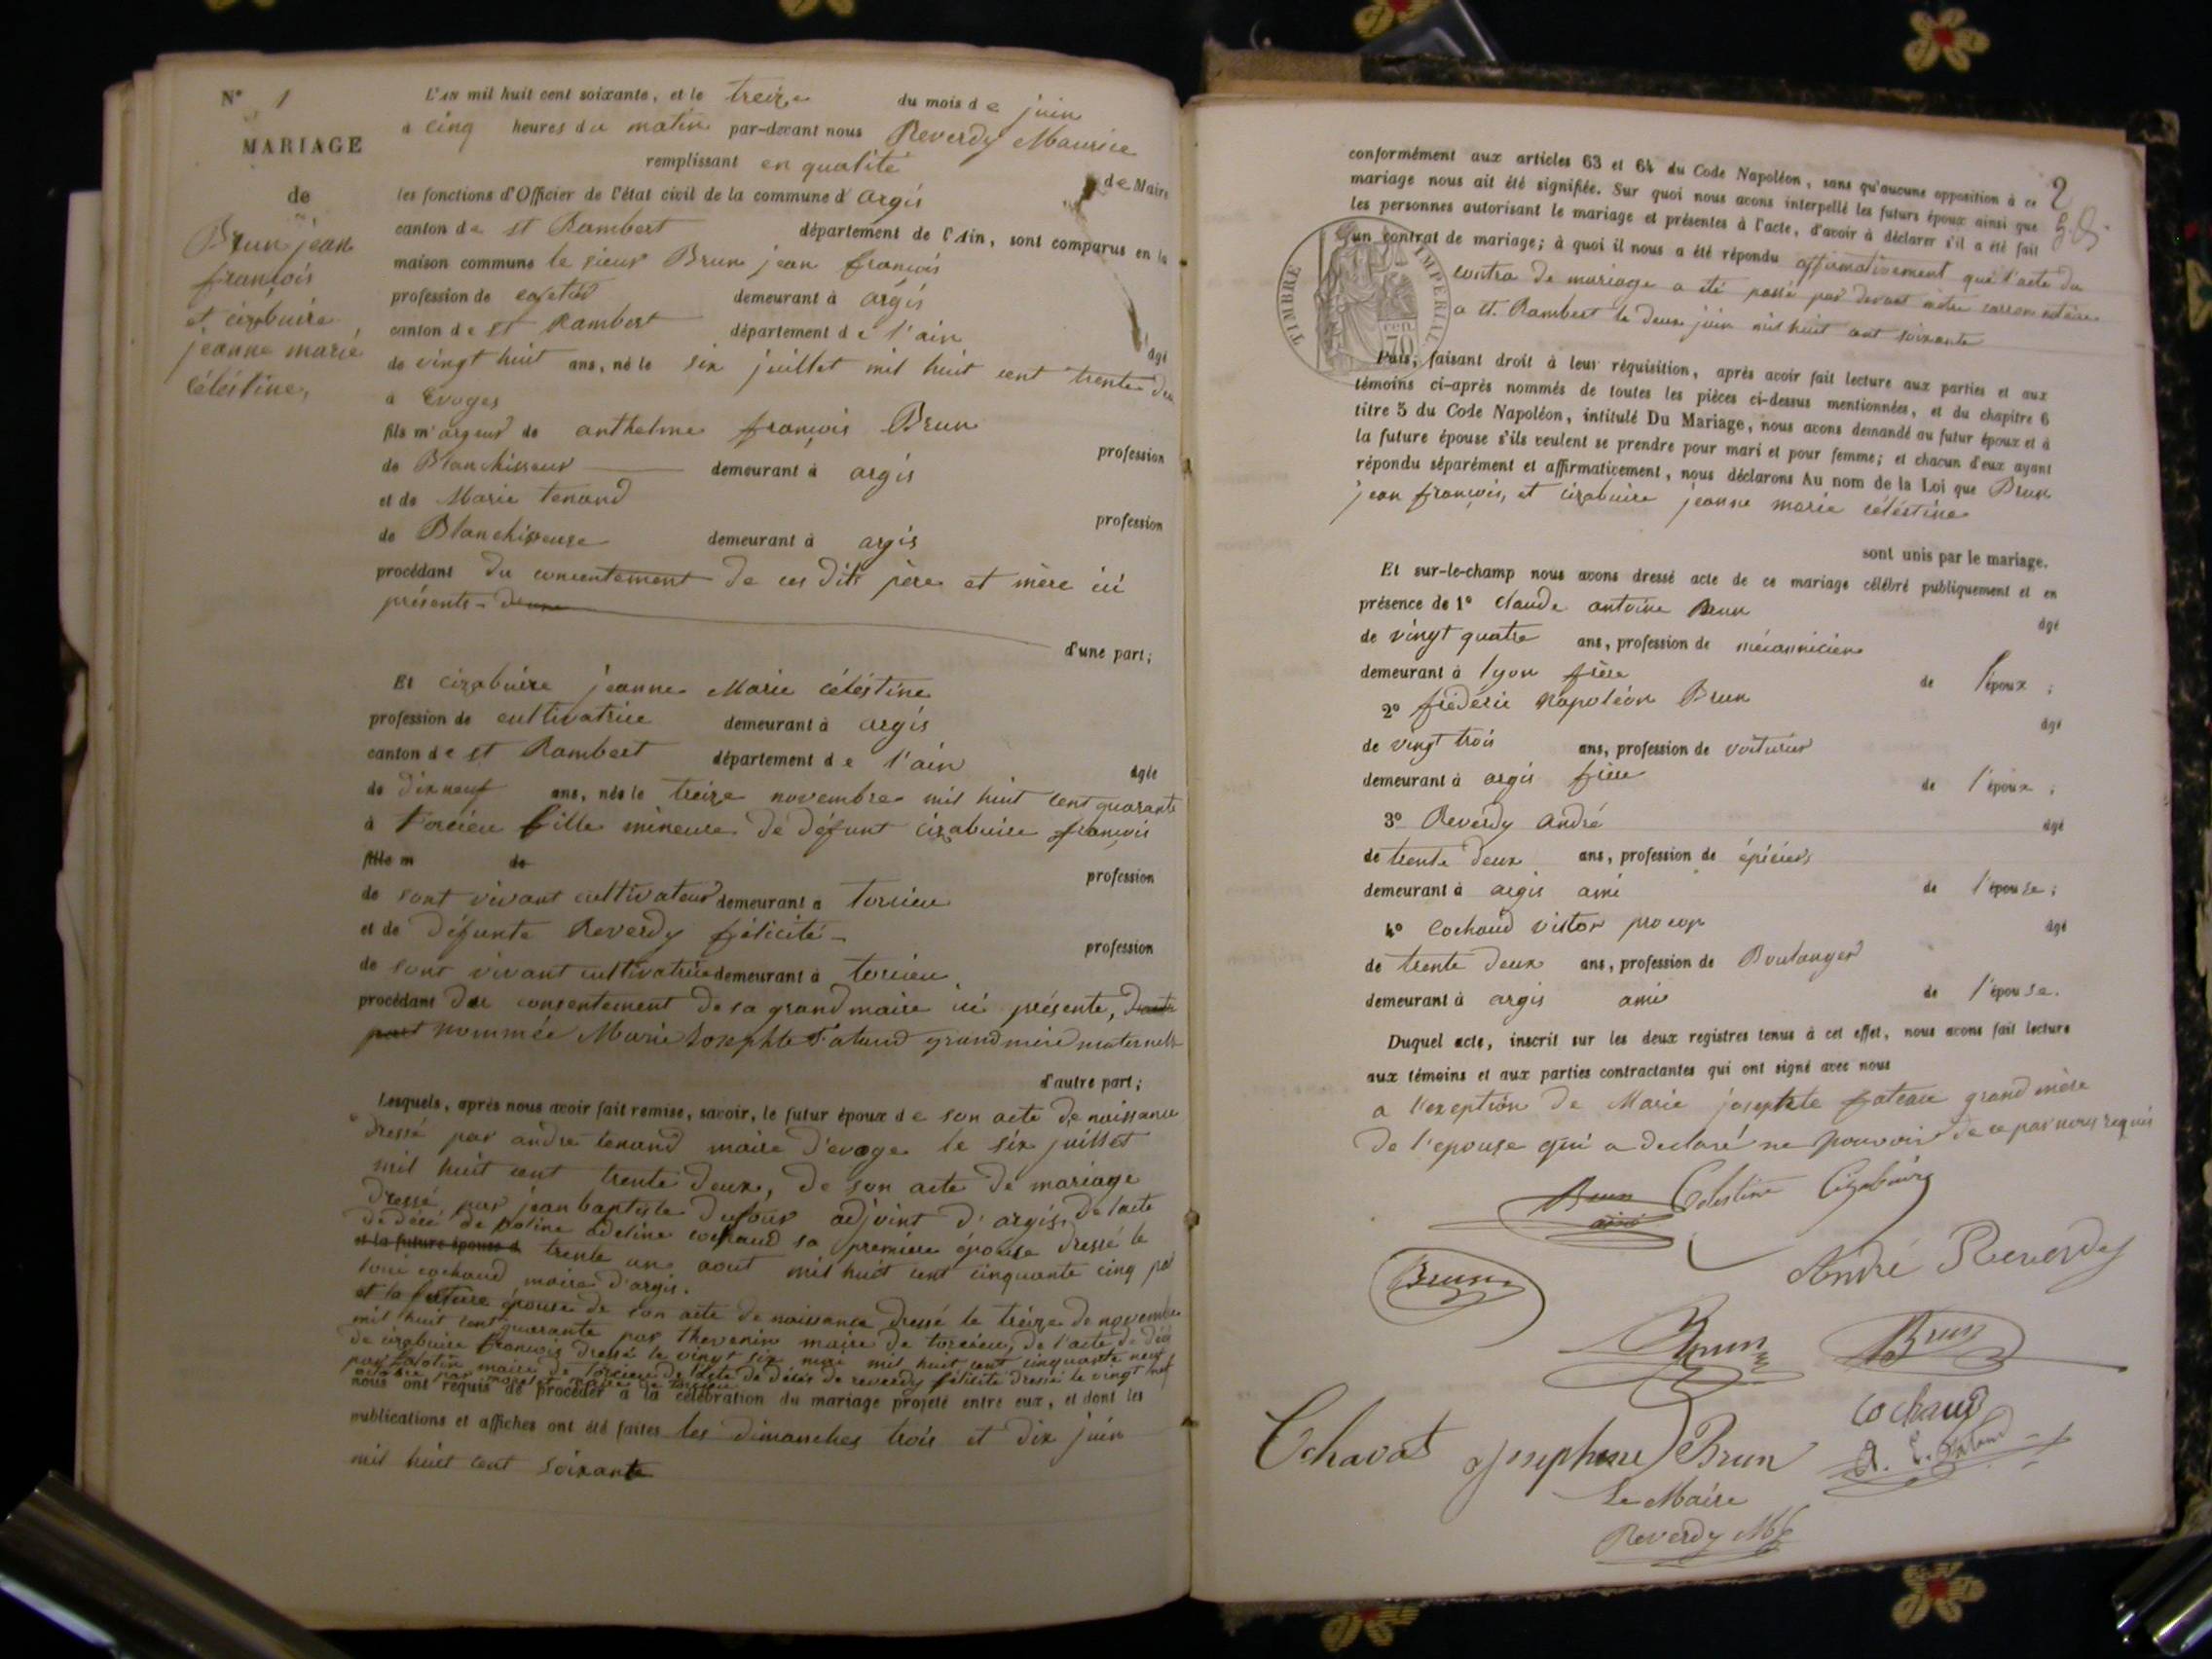 N° 1
MARIAGE
de
Brun jean
françois
et cizabuire
jeanne marie
céléstine,
L'AN mil huit cent soixante, et le treize du mois de juin
à cinq heures du matin par-devant nous Reverdy Maurice
remplissant en qualité de Maire
les fonctions d'Officier de l'état civil de la commune d'argis
canton de st Rambert département de l'Ain, sont comparus en la
maison commune le sieur Brun jean françois
profession de cafetier demeurant à argis
canton de st Rambert département de l'ain âgé
de vingt huit ans, né le six juillet mil huit cent trente deux
à Evoges
fils m'argeur de anthelme françois Brun
profession
de Blanchisseur demeurant à argis
et de Marie tenand
profession
de Blanchisseuse demeurant à argis
procédant du concentement de ces dits père et mère ici
présents - d'une
d'une part;
Et cizabuire jeanne Marie céléstine
profession de cultivatrice demeurant à argis
canton de st Rambert département de l'ain
âgée
de dix neuf ans, née le treize novembre mil huit cent quarante
à torcieu fille mineure de défunt cizabuire françois
fille m de
profession
de sont vivant cultivateur demeurant à torcieu
et de défunte Reverdy félicité -
profession
de sont vivant cultivatrice demeurant à torcieu
procédant du consentement de sa grand maire ici présente, d'autre
part nommée Marie Josephte grand mère maternelle
d'autre part;
Lesquels, après nous avoir fait remise, savoir, le futur époux de son acte de naissance
dressé par andré tenand maire d'evoge le six juillet
mil huit cent trente deux, de son acte de mariage
dressé par jean baptiste dufour adjoint d'argis, de l'acte
de décé de poline adeline cochaud sa première épouse dressé le
et la future épouse d trente un aout mil huit cent cinquante cinq par
cochaud maire d'argis.
et la future épouse de son acte de naissance dressé le treize de novembre
mil huit cent quarante par thevenin maire de torcieu, de l'acte de décé
de cizabuire françois dressé le vingt six mai mil huit cent cinquante neuf
par maire de torcieu de l'acte de décés de reverdy félicité dressé le vingt
octobre par maire de torcieu
nous ont requis de procéder à la célébration du mariage projeté entre eux, et dont les
publications et affiches ont été faites les dimanches trois et dix juin
mil huit cent soixante
2
conformément aux articles 63 et 64 du Code Napoléon, sans qu'aucune opposition à ce
mariage nous ait été signifiée. Sur quoi nous avons interpellé les futurs époux ainsi que
les personnes autorisant le mariage et présentes à l'acte, d'avoir à déclarer s'il a été fait
un contrat de mariage; à quoi il nous a été répondu affirmativement que l'acte du
contra de mariage a été passé par devant mètre carron notaire
a st. Rambert le deux juin mil huit cent soixante
TIMBRE IMPERIAL
70 cen
Puis, faisant droit à leur réquisition, après avoir fait lecture aux parties et aux
témoins ci-après nommés de toutes les pièces ci-dessus mentionnées, et du chapitre 6
titre 5 du Code Napoléon, intitulé Du Mariage, nous avons demandé au futur époux et à
la future épouse s'ils veulent se prendre pour mari et pour femme; et chacun d'eux ayant
répondu séparément et affirmativement, nous déclarons Au nom de la Loi que Brun
jean françois, et cizabuire jeanne marie céléstine
sont unis par le mariage.
Et sur-le-champ nous avons dressé acte de ce mariage célébré publiquement et en
présence de 1° claude antoine Brun
âgé
de vingt quatre ans, profession de mécannicien
demeurant à lyon frère de l'époux ;
2° frédéric Napoléon Brun
âgé
de vingt trois ans, profession de voiturier
demeurant à argis frère de l'époux ;
3° Reverdy André
âgé
de trente deux ans, profession de épicier
demeurant à argis ami de l'épouse ;
4° Cochaud victor procop
âgé
de trente deux ans, profession de Boulanger
demeurant à argis ami de l'épouse.
Duquel acte, inscrit sur les deux registres tenus à cet effet, nous avons fait lecture
aux témoins et aux parties contractantes qui ont signé avec nous
a l'exeption de Marie josephte grand mère
de l'epouse qui a declaré ne pouvoir de ce par nous requis
Brun ainé
Celestine Cizabuire
Brun
André Reverdy
Brun
Brun
Cochaud
Echavat
Josephine Brun
Le Maire
Reverdy